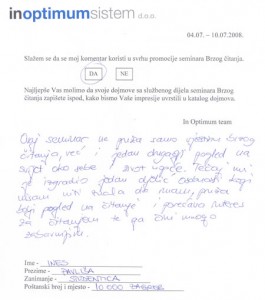 inoptimumsistem d.o.o.
04.07. – 10.07.2008.
Slažem se da se moj komentar koristi u svrhu promocije seminara Brzog čitanja.
DA NE
Najljepše Vas molimo da svoje dojmove sa službenog dijela seminara Brzog
čitanja zapišete ispod, kako bismo Vaše impresije uvrstili u katalog dojmova.
In Optimum team
Ovaj seminar ne pruža samo vještinu brzog
čitanja, već i jedan drugačiji pogled na
svijet oko sebe i život uopće. Tečaj mi
je izgradio jedan dio osobnosti koji
nisam niti znala da imam, pruža
bolji pogled na čitanje i povećava interes
za čitanjem te ga čini mnogo
zabavnijim.
Ime - INES
Prezime - PAVLIŠA
Zanimanje - STUDENTICA
Poštanski broj i mjesto - 10 000 ZAGREB